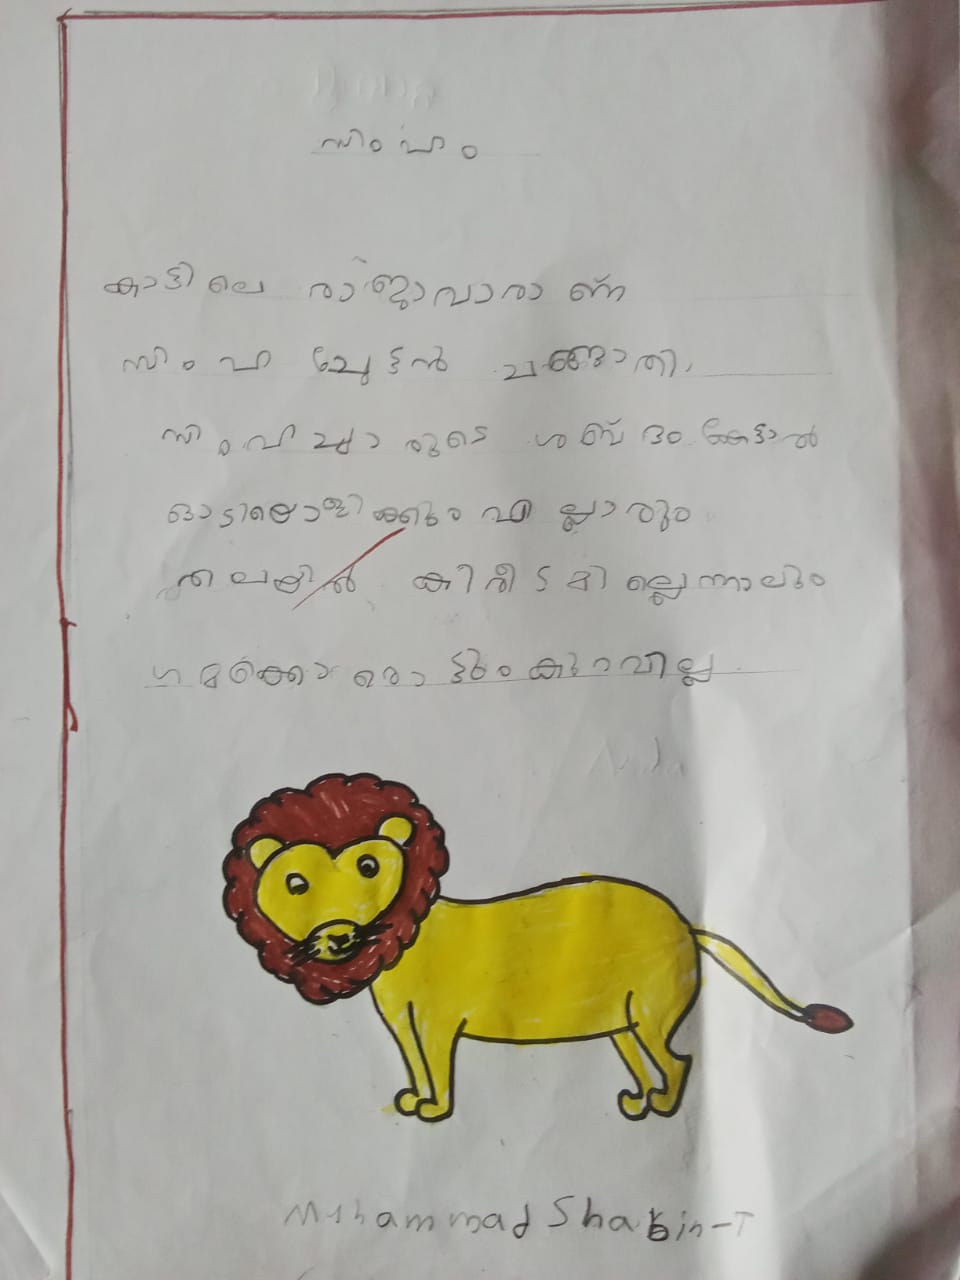 സിംഹം
കാട്ടിലെ രാജാവാരാണ്
സിംഹ ച്ചേട്ടൻ ചങ്ങാതി,
സിംഹച്ചാരുടെ ശബ്ദം കേട്ടാൽ
ഓടിയൊളിക്കും എല്ലാരും
തലയിൽ കിരീടമില്ലെന്നാലും
ഗമക്കൊരൊട്ടും കുറവില്ല.
Muhammad Shabin-T